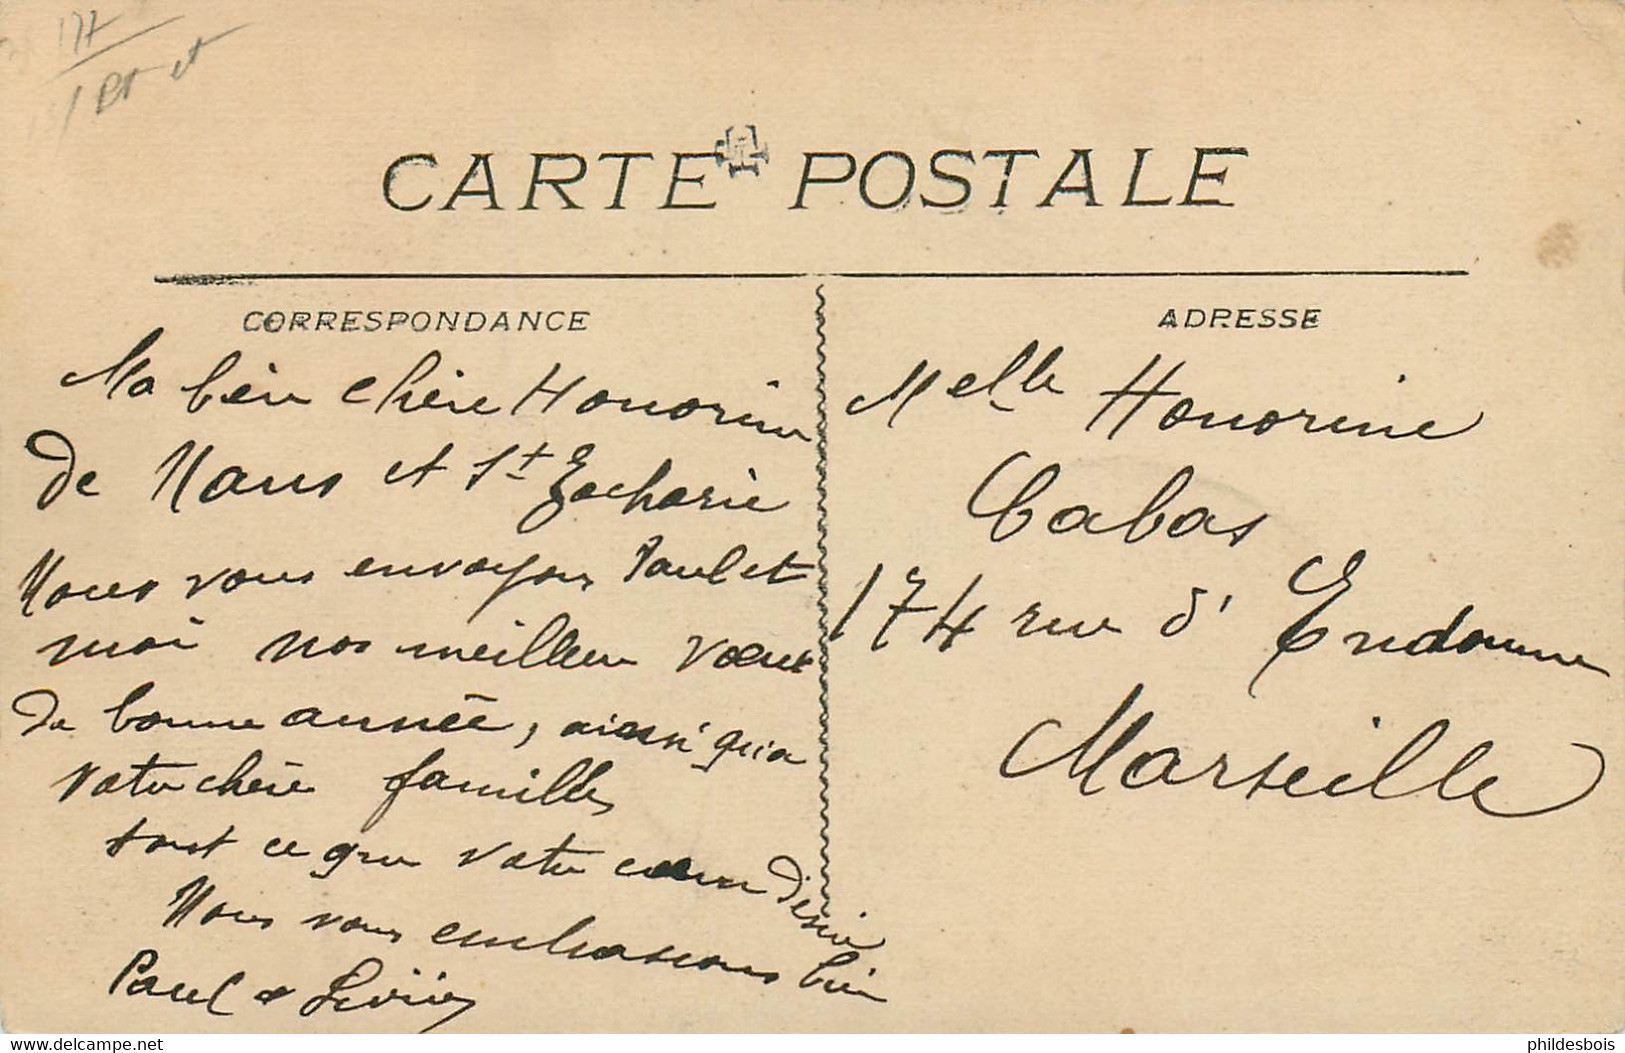 177
CARTE POSTALE
CORRESPONDANCE
Ma bien chère Honorine
de Nans et St Zacharie
Nous vous envoyons Paul et
moi nos meilleurs vœux
de bonne année, ainsi qu'a
votre chère famille,
tout ce que votre cœur désire
Nous vous embrassons bien
Paul &
ADRESSE
Melle Honorine
Cabas
174 rue d'Endoume
Marseille
www.delcampe.net
phildesbois